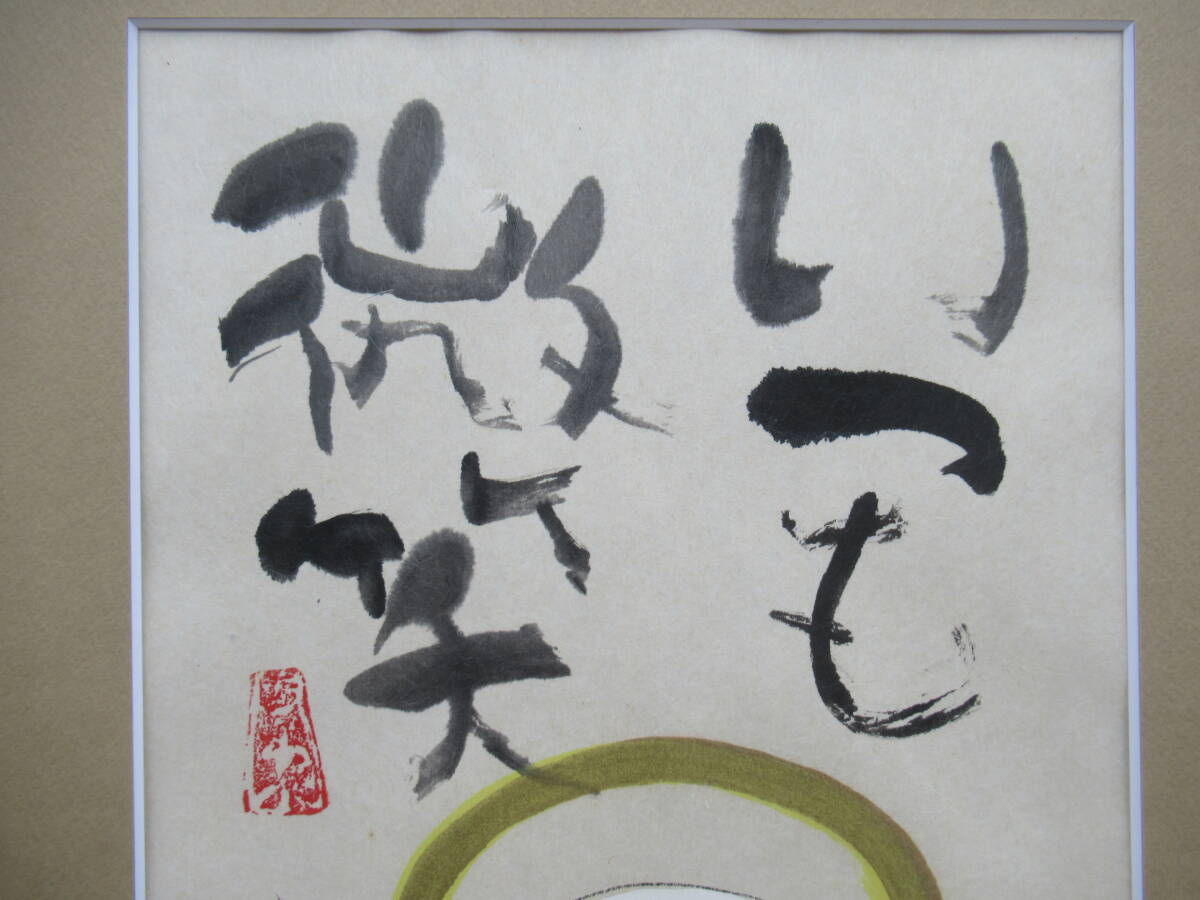 いつも
微笑